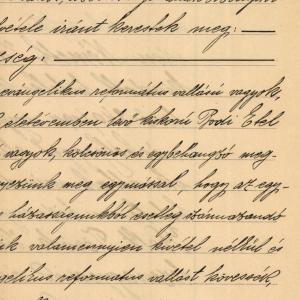 vétele iránt kerestek meg: —
ség: —
evangélikus református vallású vagyok,
életévemben levő kiskorú Etel
vagyok, kölcsönös és egybehangzó meg-
egyezünk meg egymással, hogy az egy-
házasságunkból esetleg származandó
valamennyien kivétel nélkül és
gelikus református vallást kövessék,